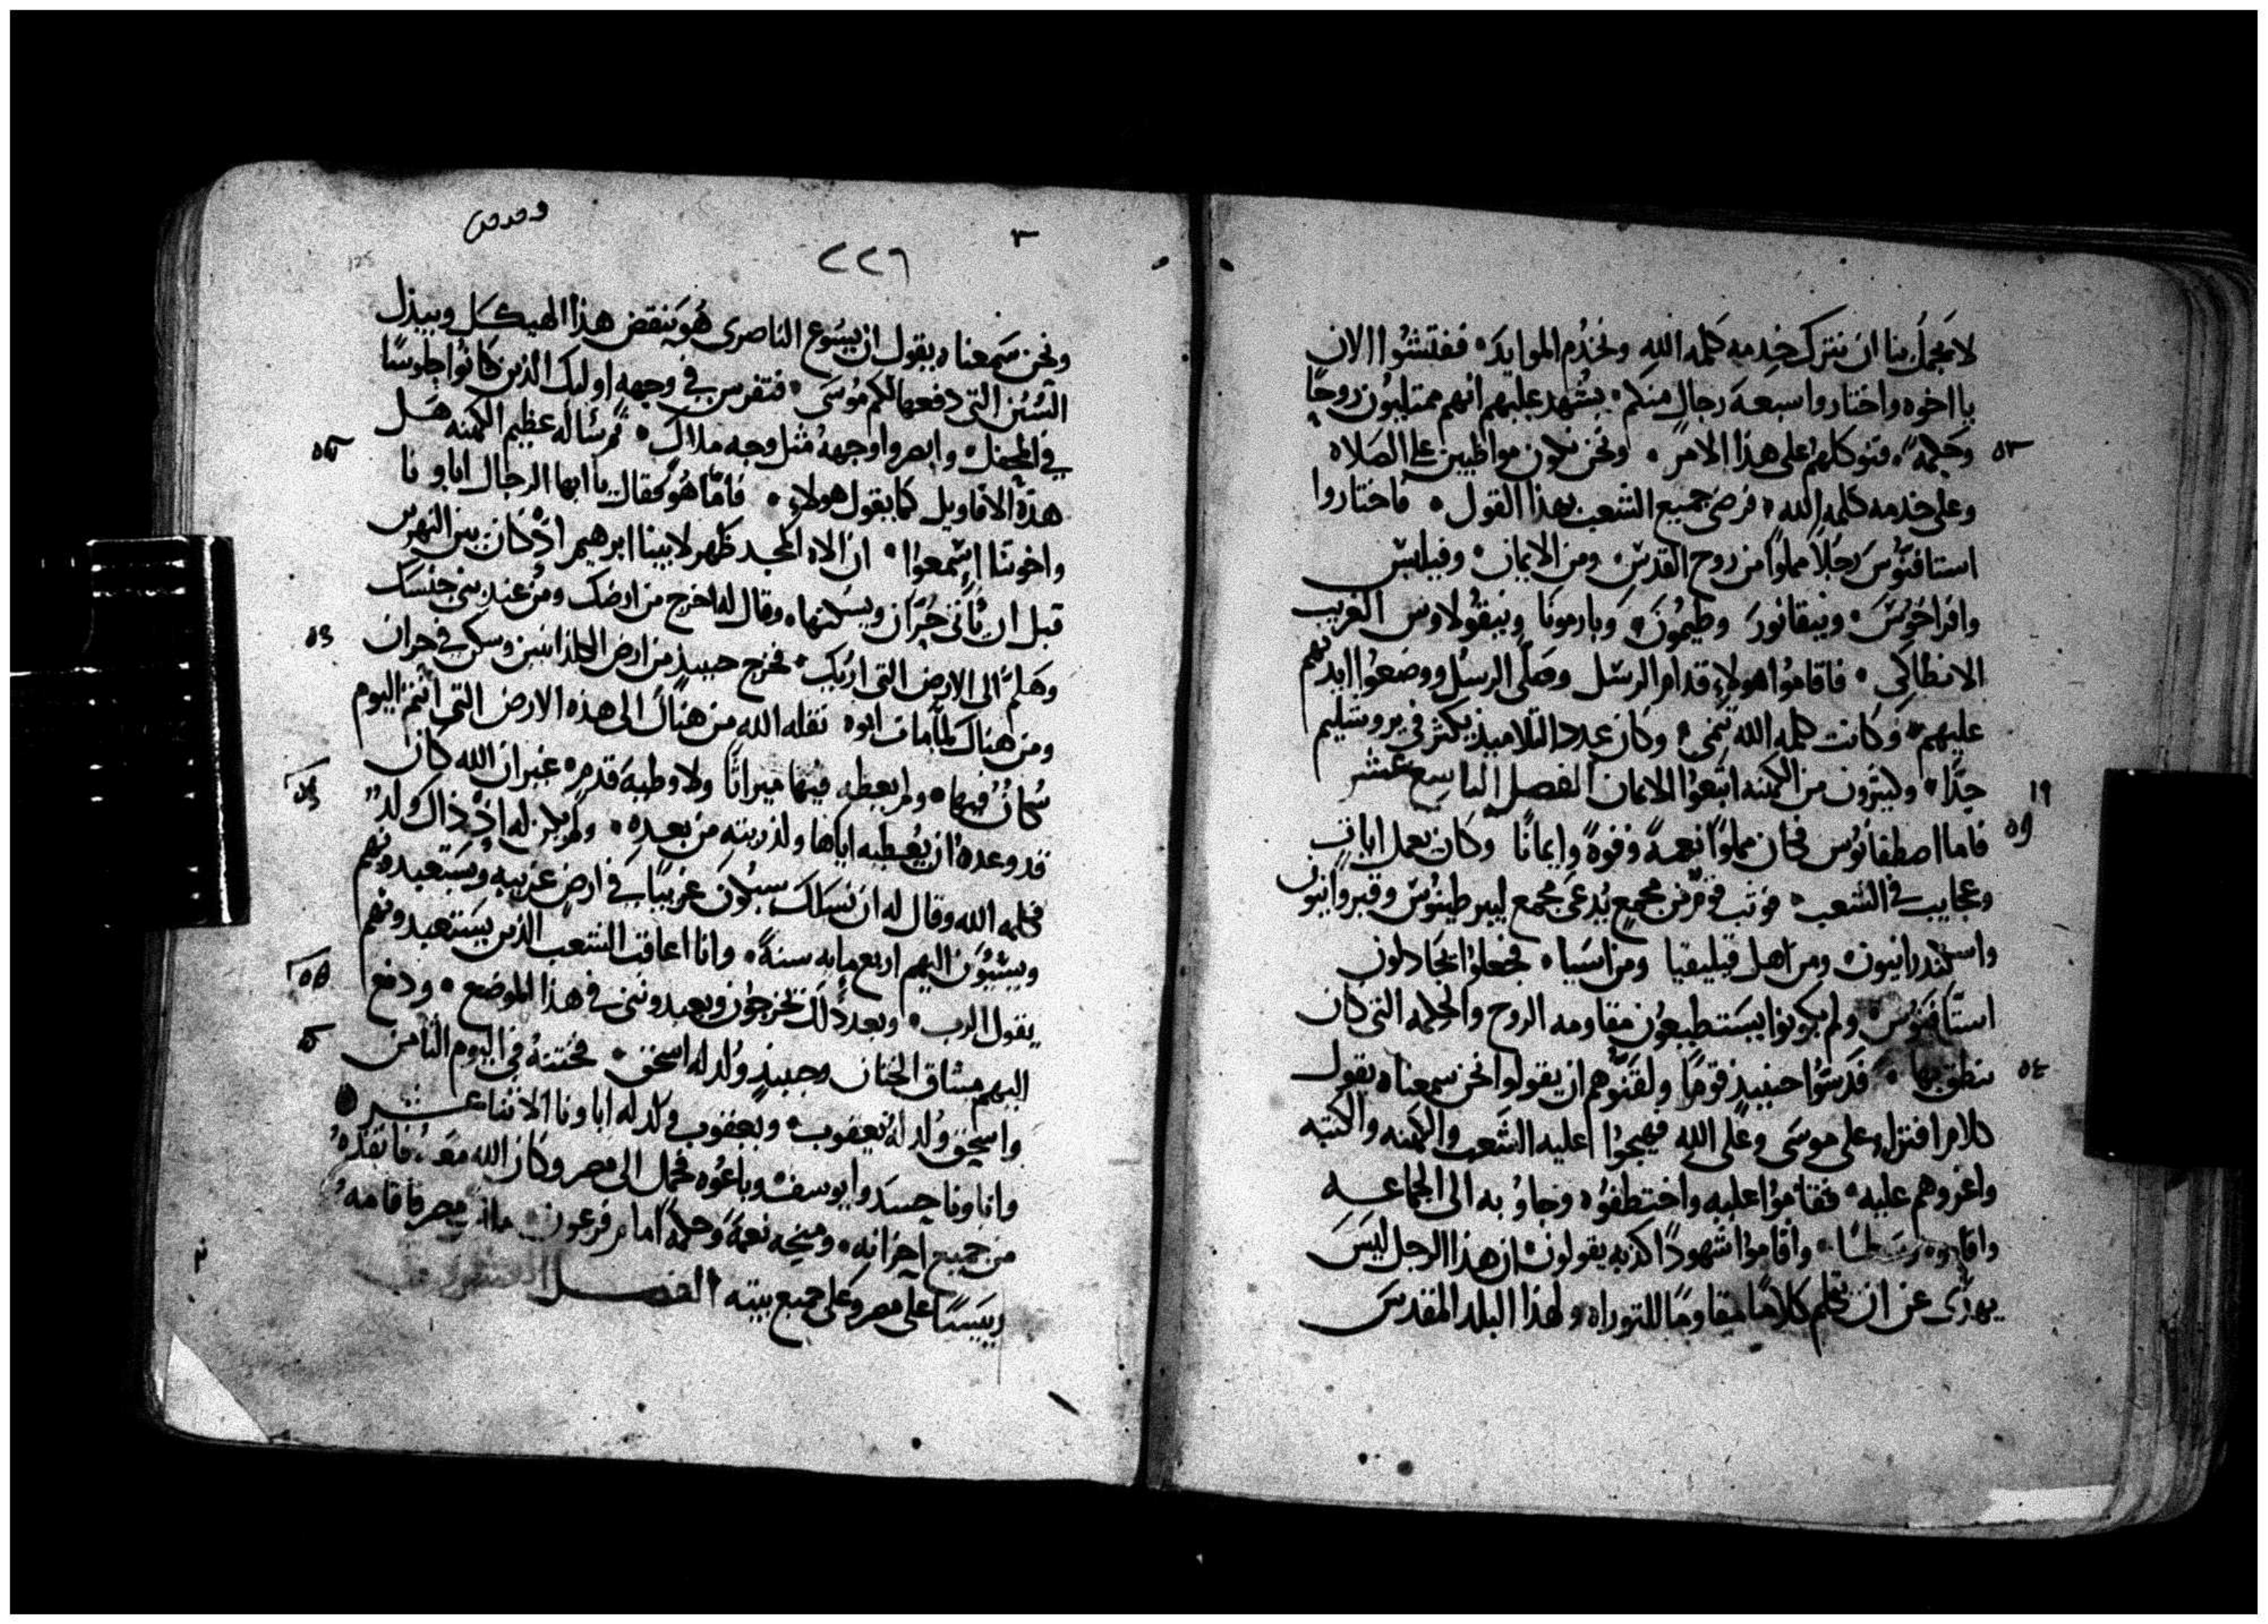 لا يجمل بنا ان نترك خدمه كلمه الله ونخدم الموايد ففتشوا الان
يا اخوه واختاروا سبعه رجال منكم يشهد عليهم انهم ممتليون روحا
وحكمة فنوكلهم على هذا الامر ونحن نكون مواظبين على الصلاه
وعلى خدمه كلمه الله فرضى جميع الشعب بهذا القول فاختاروا
استافنوس رجلا مملوا من روح القدس ومن الايمان وفيلبس
وافراخورس ونيقانور وطيمون وبارمونا ونيقولاوس الغريب
الانطاكي فاقاموا هولاء قدام الرسل وصلى الرسل ووضعوا ايديهم
عليهم وكانت كلمه الله تنمى وكان عدد التلاميذ يكثر في يروشليم
جدا وكثيرون من الكهنه اتبعوا الايمان الفصل التاسع عشر
١٩
فاما اصطفانوس فكان مملوا نعمة وقوة وايمانا وكان يعمل ايات
وعجايب في الشعب فوثب قوم من مجمع يدعى مجمع ليبرطينوس وقيروانيون
واسكندرانيون ومن اهل قيليقيا ومن اسيا فجعلوا يجادلون
استافنوس ولم يكونوا يستطيعون مقاومه الروح والحكمه التي كان
ينطق بها فدسوا حينيذ قوما ولقنوهم ان يقولوا نحن سمعناه يقول
كلام افتراء على موسى وعلى الله فهيجوا عليه الشعب والكهنه والكتبه
واغروهم عليه فقاموا عليه واختطفوه وجاؤ به الى الجماعه
واقاموه وسطا واقاموا شهودا كذبه يقولون ان هذا الرجل ليس
يهدى عن ان يتكلم كلاما مقاوما للتوراه ولهذا البلد المقدس
٢٢٦
125
ونحن سمعناه يقول ان يسوع الناصرى هو ينقض هذا الهيكل ويبذل
السنن التي دفعها لكم موسى فتفرس في وجهه اوليك الذين كانوا جلوسا
في المحفل وابصروا وجهه مثل وجه ملاك ثم سئاله عظيم الكهنه هل
هذه الاقاويل كما يقول هولاء فاما هو فقال يا ايها الرجال اباونا
واخوتنا اسمعوا ان الاه المجد ظهر لابينا ابرهيم اذ كان بين النهرين
قبل ان ياتى حران ويسكنها وقال له اخرج من ارضك ومن عند بنى جنسك
وهلم الى الارض التي اريك فخرج حينيذ من ارض الكلدانيين وسكن في حران
ومن هناك لما مات ابوه نقله الله من هناك الى هذه الارض التي انتم اليوم
سكان فيها ولم يعطه فيها ميراثا ولا وطية قدم غير ان الله كان
قد وعده ان يعطيه اياها ولذريته من بعده ولم يكن له اذ ذاك ولد
فكلمه الله وقال له ان نسلك سيكون غريبا في ارض غريبه ويستعبدونهم
ويسيؤن اليهم اربع مايه سنة وانا اعاقب الشعب الذين يستعبدونهم
يقول الرب وبعد ذلك يخرجون ويعبدونني في هذا الموضع ودفع
اليهم ميثاق الختان وحينيذ ولد له اسحق فختنه في اليوم الثامن
واسحق ولد له يعقوب ويعقوب ولد له اباونا الاثنا عشر
واباونا حسدوا يوسف وباعوه فحمل الى مصر وكان الله معه فانقذه
من جميع احزانه ومنحه نعمة وحكمة امام فرعون ملك مصر فاقامه
رييسا على مصر وعلى جميع بيته الفصل العشرون